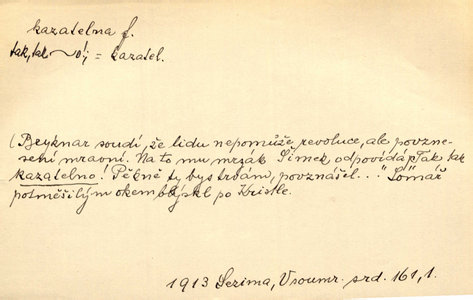 kazatelna f.
tak, tak ~o! = kazatel.
(Beyknar soudí, že lidu nepomůže revoluce, ale povzne-
sení mravní. Na to mu mrzák Šimek odpovídá: „Tak, tak
kazatelno! Pěkně ty bys trávám, povznášel..." Šómař
potměšilým okem blýskl po Kristle.
1913 Sezima, V soumr. srd. 161, 1.